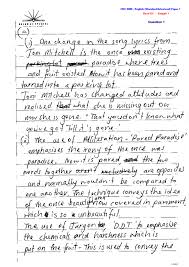 HSC 2009 - English (Standard/Advanced) Paper 1
Question 1
(i) One change in the song lyrics from
Joni Mitchell is the once existing
parking lot paradise where trees
and fruit existed. Now it has been paved and
turned into a parking lot.
Joni Mitchell has changed attitudes and
realised what she's missing was the
once loved. "That you don't know what
you've got till its gone.
(ii) The use of Alliteration - 'Paved Paradise'
emphasises the irony of the once was
paradise. Now is paved and the two
words together are and
and normally wouldn't be compared to
one another. The technique conveys the idea
of the once beautiful view covered in pavement
which is so unbeautiful.
The use of Jargon 'D.D.T' to emphasise
the chemicals and harshness which is
put on the fruit - This is used to convey the